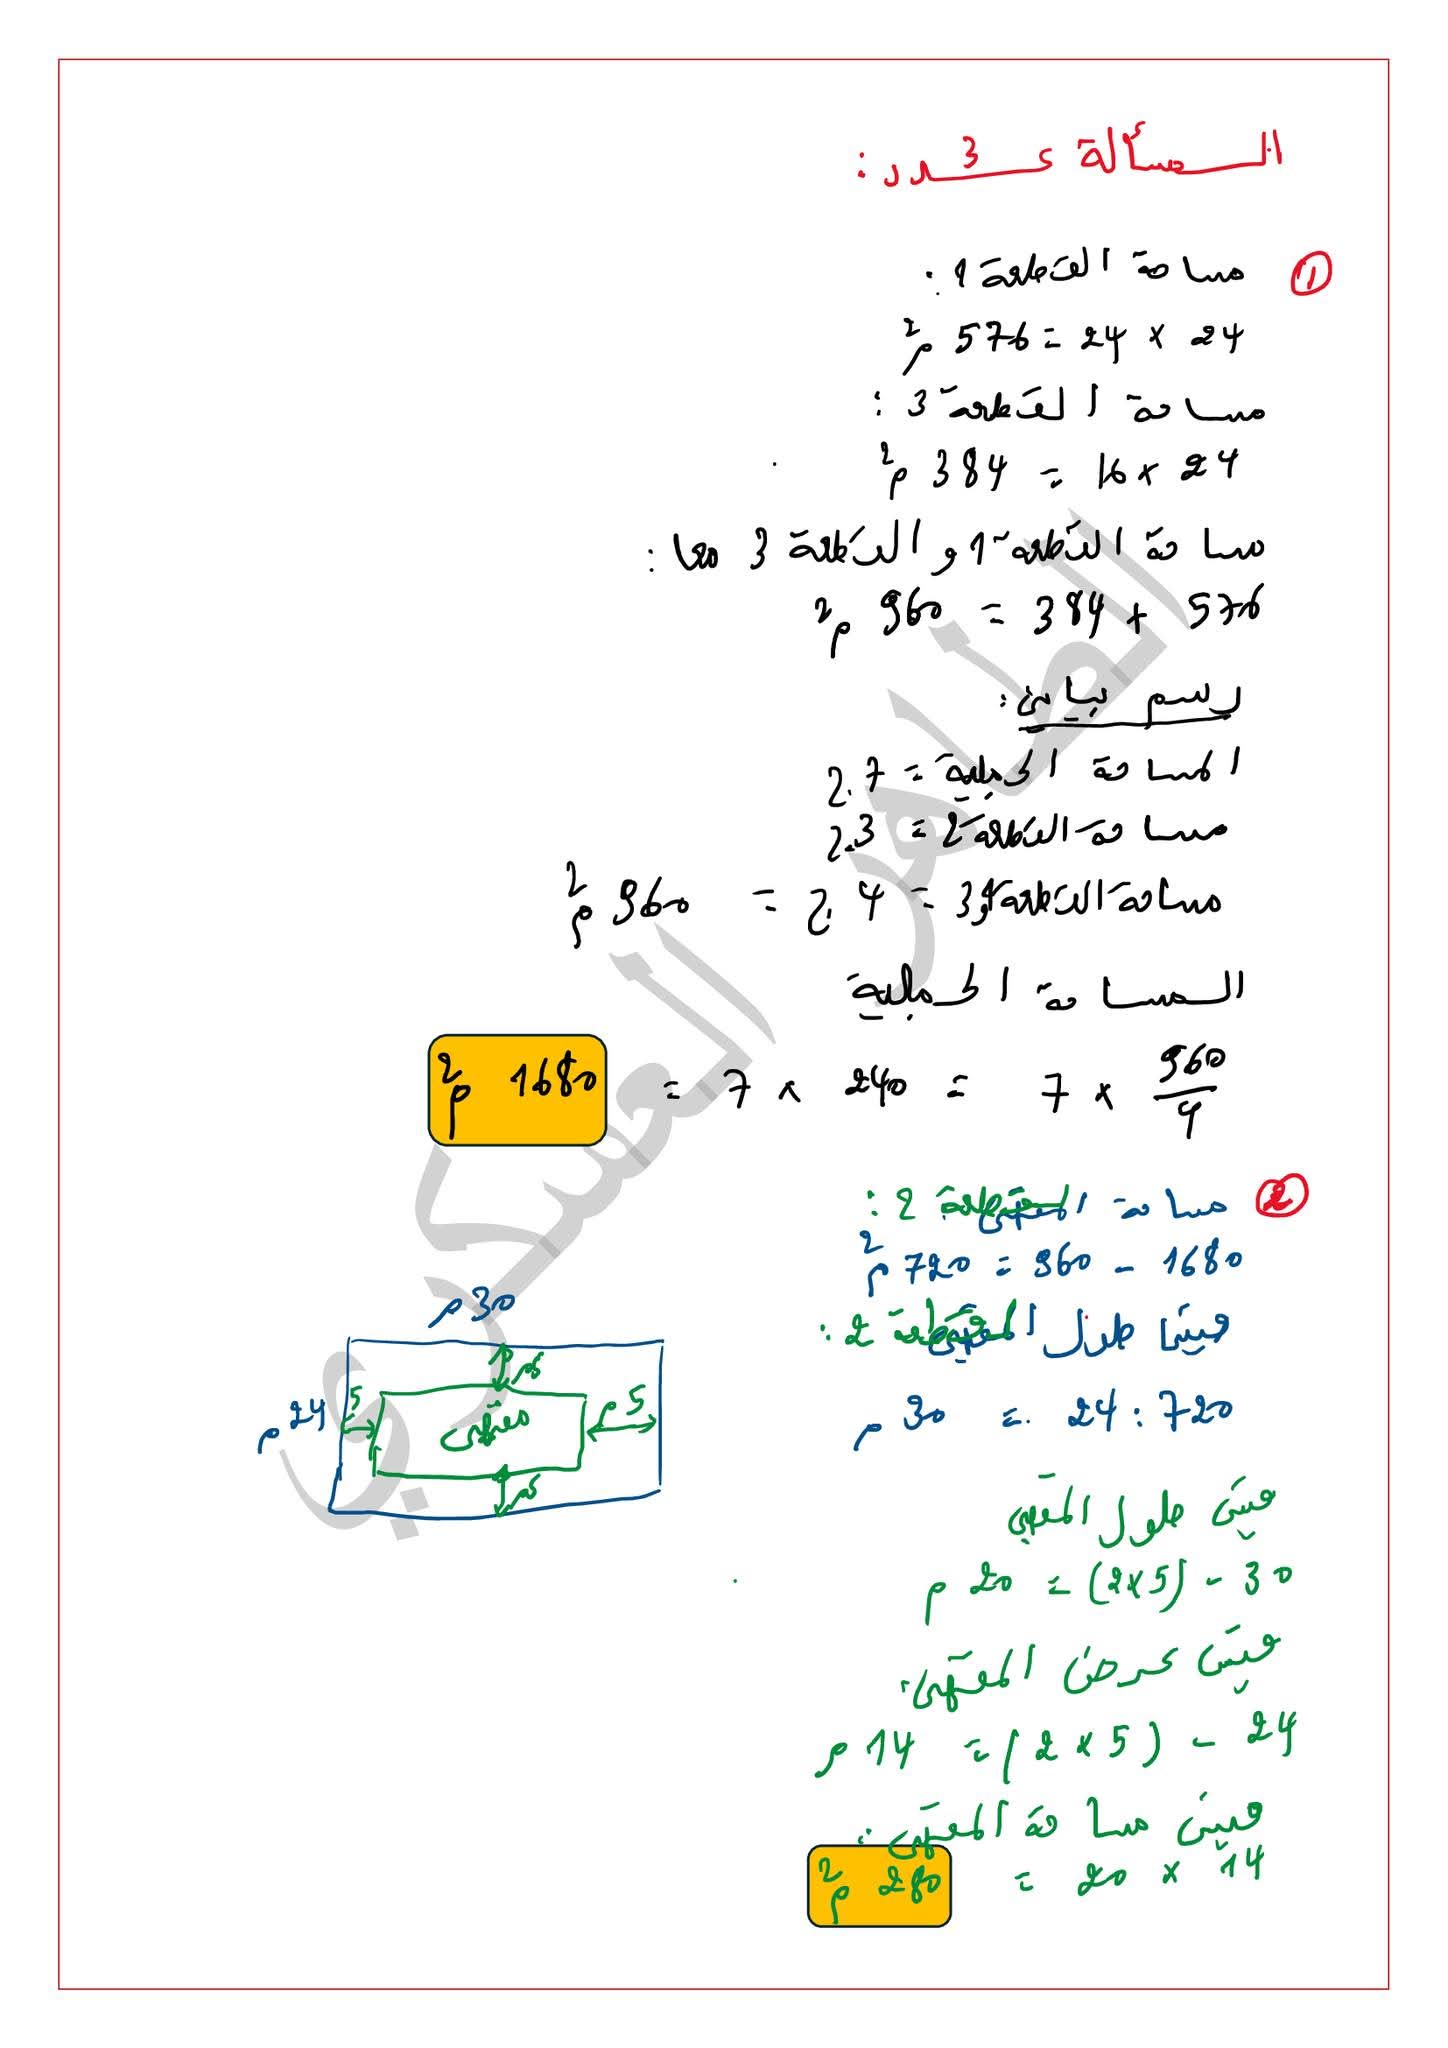 المسألة عـ3ـدد :
①
مساحة القطعة 1 :
24 × 24 = 576 م²
مساحة القطعة 3 :
24 × 16 = 384 م²
مساحة القطعة 1 و القطعة 3 معا :
576 + 384 = 960 م²
رسم بياني :
المساحة الجملية = 7 ج.
مساحة القطعة 2 = 3 ج.
مساحة القطعة 1 و 3 = 4 ج. = 960 م²
المساحة الجملية
960/4 × 7 = 240 × 7 = 1680 م²
②
مساحة القطعة 2 :
1680 - 960 = 720 م²
قيس طول القطعة 2 :
720 : 24 = 30 م
30 م
24 م
5
5 م
5م
5م
مقهى
قيس طول المقهى
30 - (5×2) = 20 م
قيس عرض المقهى :
24 - (5 × 2) = 14 م
قيس مساحة المقهى :
14 × 20 = 280 م²
الطاهر العسكري